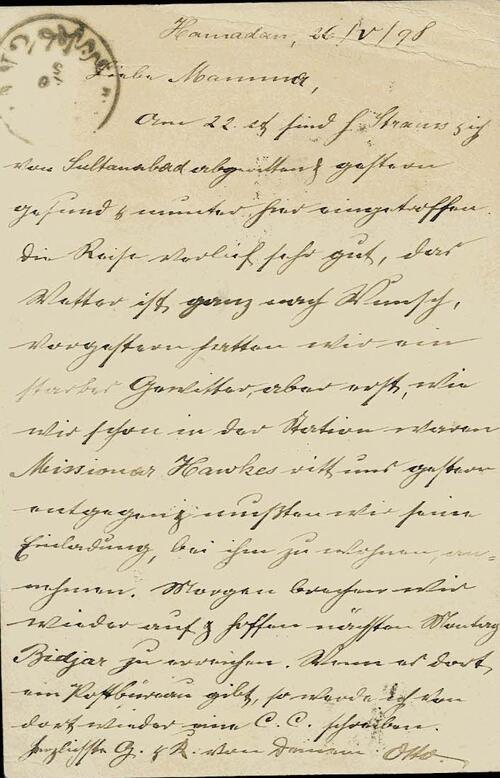 Hamadan, 26/V/98
Liebe Mamma,
Am 22. ct sind H. Strauss & ich
von Sultanabad abgeritten & gestern
gesund & munter hier eingetroffen.
die Reise verlief sehr gut, das
Wetter ist ganz nach Wunsch,
vorgestern hatten wir ein
starkes Gewitter, aber erst, wie
wir schon in der Station waren
Missionar Hawkes ritt uns gestern
entgegen & mußten wir seine
Einladung, bei ihm zu wohnen, an=
nehmen. Morgen brechen wir
wieder auf & hoffen nächsten Montag
Bidjar zu erreichen. Wenn es dort
ein Postbüreau gibt, so werde ich von
dort wieder eine C. C. schreiben.
herzlichste G. & K. von Deinem Otto.